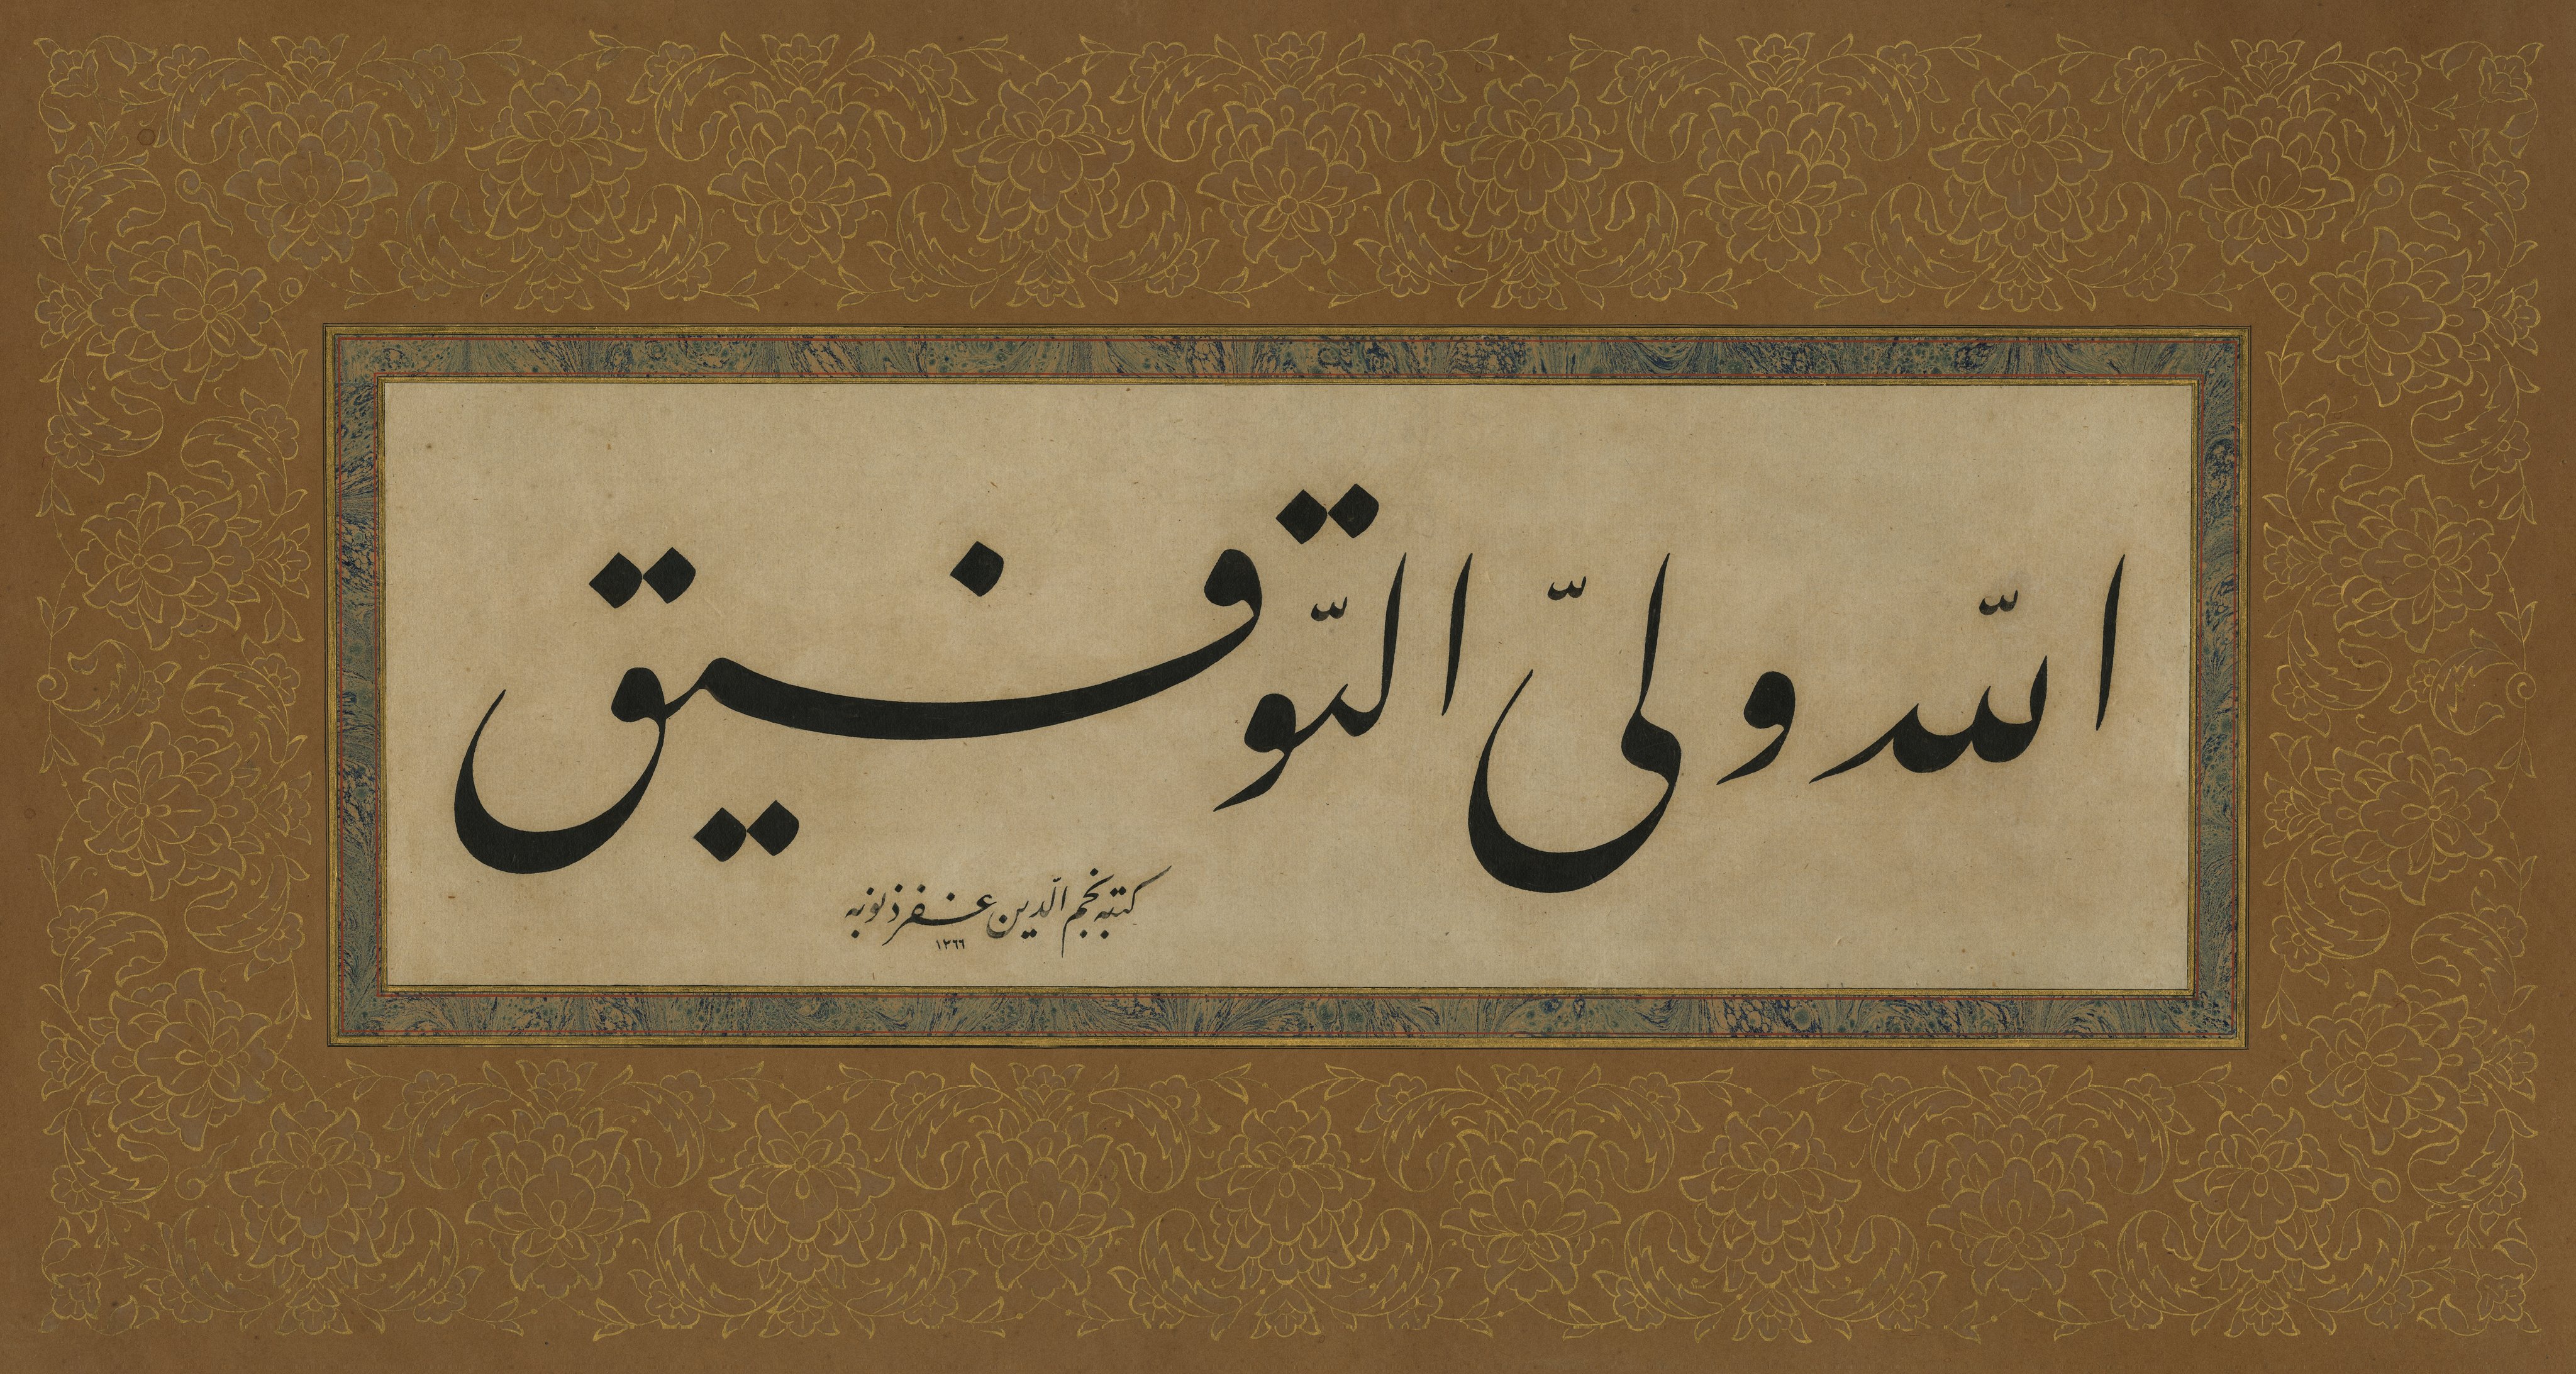 الله ولىّ التّوفيق
كتبه نجم الدّين غفر ذنوبه
١٢٦٦